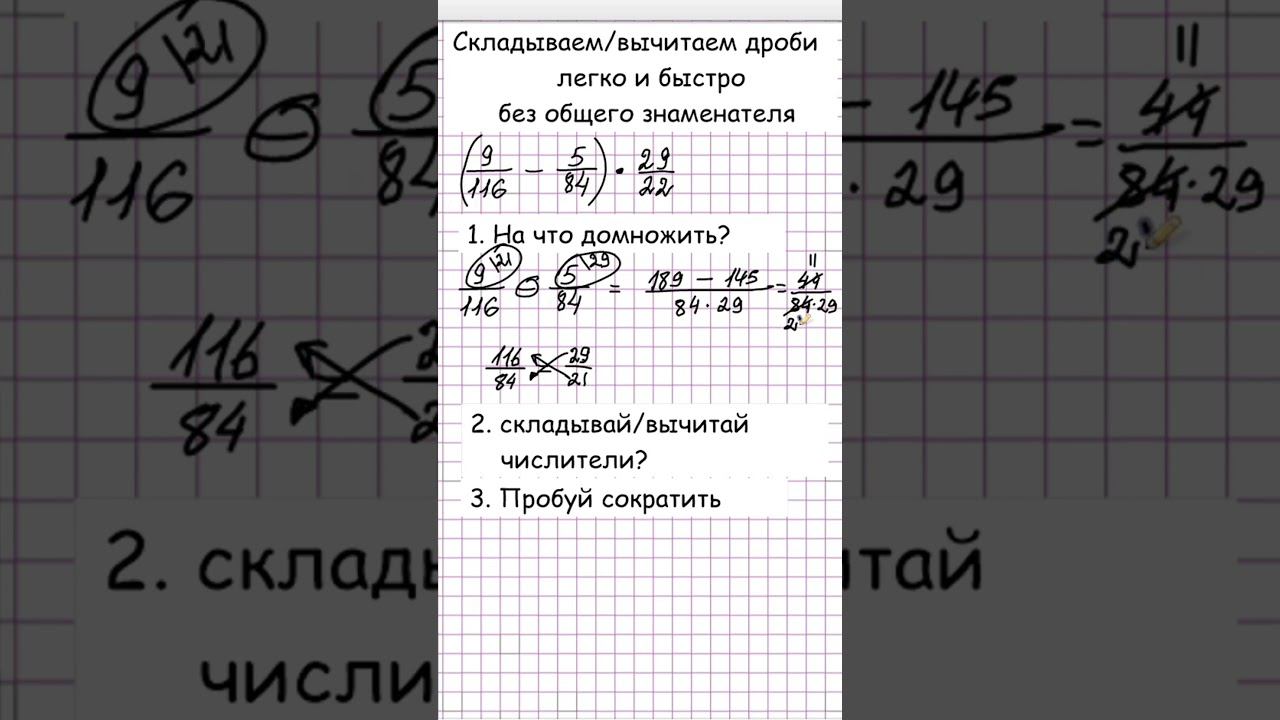 Складываем/вычитаем дроби
легко и быстро
без общего знаменателя
(9/116 − 5/84) · 29/22
1. На что домножить?
9\21/116 ⊖ 5\29/84 = 189 − 145/84·29 = 44/84·29
11
116/84 29/21
2. складывай/вычитай
числители?
3. Пробуй сократить